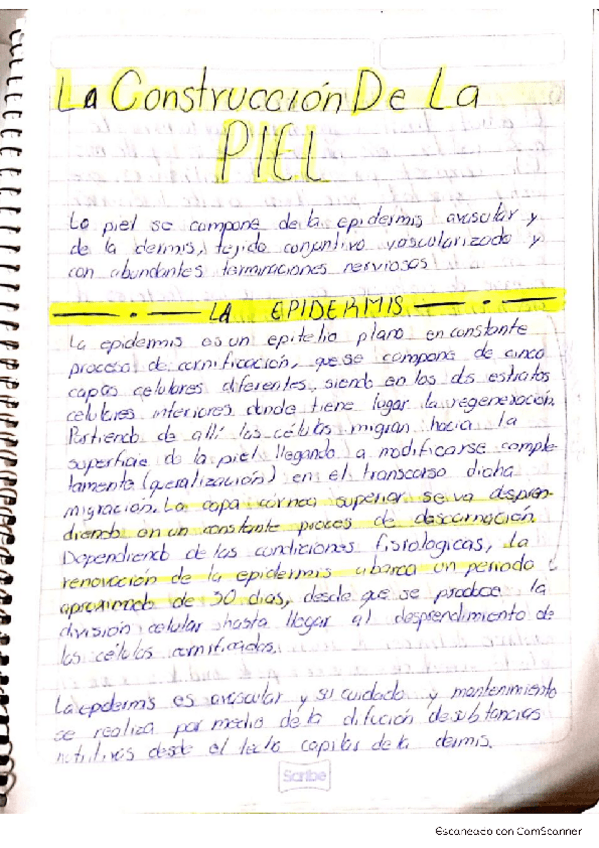 La Construcción De La
PIEL
La piel se compone de la epidermis avascular y
de la dermis, tejido conjuntivo vascularizado y
con abundantes terminaciones nerviosas
LA EPIDERMIS
La epidermis es un epitelio plano en constante
proceso de cornificación, que se compone de cinco
capas celulares diferentes, siendo en los ds estratos
celulares interiores donde tiene lugar la regeneración.
Partiendo de allí las células migran hacia la
superficie de la piel llegando a modificarse comple-
tamente (queralización) en el transcurso dicha
migración. La capa córnea superior se va despren-
diendo en un constante proces de descamación.
Dependiendo de las condiciones fisiologicas, la
renovación de la epidermis abarca un periodo
aproximado de 30 dias, desde que se produce la
división celular hasta llegar al desprendimiento de
las células cornificadas.
La epdermis es avascular y su cuidado y mantenimiento
se realiza por medio de la difución de substancias
nutritivas desde el lecho capilar de la dermis.
Scribe
Escaneado con CamScanner